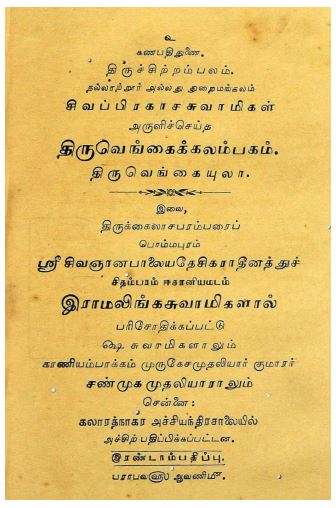 உ
கணபதிதுணை.
திருச்சிற்றம்பலம்.
நல்லாற்றூர் அல்லது துறைமங்கலம்
சிவப்பிரகாசசுவாமிகள்
அருளிச்செய்த
திருவெங்கைக்கலம்பகம்.
திருவெங்கையுலா.
இவை,
திருக்கைலாசபரம்பரைப்
பொம்மபுரம்
ஸ்ரீ சிவஞானபாலையதேசிகராதீனத்துச்
சிதம்பரம் ஈசானியமடம்
இராமலிங்கசுவாமிகளால்
பரிசோதிக்கப்பட்டு
௸ சுவாமிகளாலும்
காணியம்பாக்கம் முருகேசமுதலியார் குமாரர்
சண்முகமுதலியாராலும்
சென்னை:
கலாரத்நாகர அச்சியந்திரசாலையில்
அச்சிற் பதிப்பிக்கப்பட்டன.
இரண்டாம்பதிப்பு.
பராபவ௵ ஆவணி௴.